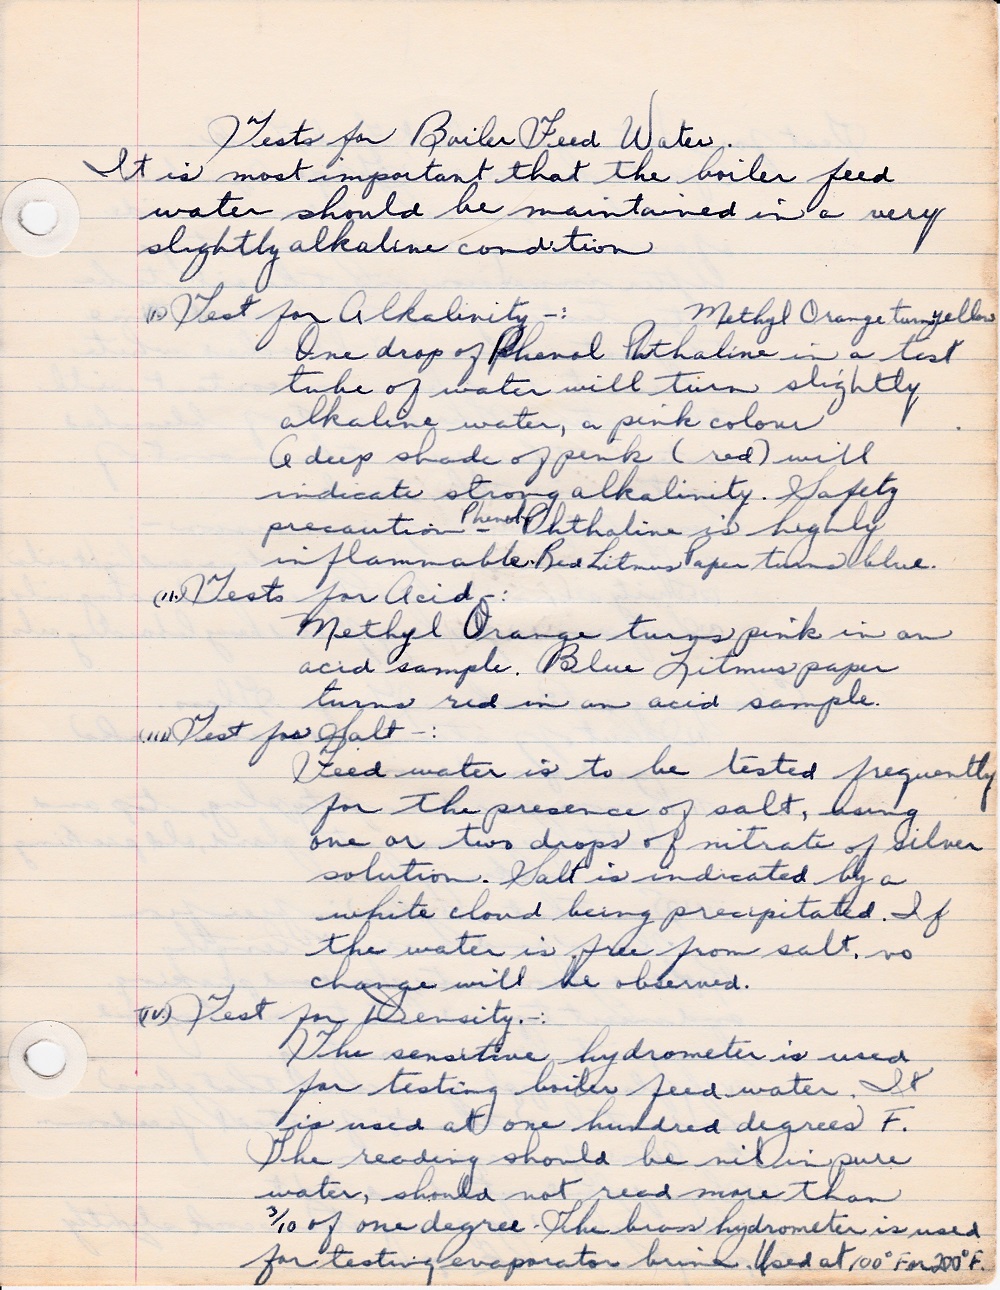 Tests for Boiler Feed Water.
It is most important that the boiler feed
water should be maintained in a very
slightly alkaline condition
(I.) Test for Alkalinity -: Methyl Orange turns yellow
One drop of Phenol Phthaline in a test
tube of water will turn slightly
alkaline water, a pink colour
A deep shade of pink (red) will
indicate strong alkalinity. Safety
precaution - Phenol Phthaline is highly
inflammable. Red Litmus Paper turns blue.
(II.) Tests for Acid -:
Methyl Orange turns pink in an
acid sample. Blue Litmus paper
turns red in an acid sample.
(III) Test for Salt -:
Feed water is to be tested frequently
for the presence of salt, using
one or two drops of nitrate of silver
solution. Salt is indicated by a
white cloud being precipitated. If
the water is free from salt, no
change will be observed.
(IV.) Test for Density. -:
The sensitive hydrometer is used
for testing boiler feed water. It
is used at one hundred degrees F.
The reading should be nil in pure
water, should not read more than
3/10 of one degree. The brass hydrometer is used
for testing evaporator brine. Used at 100° F or 200° F.